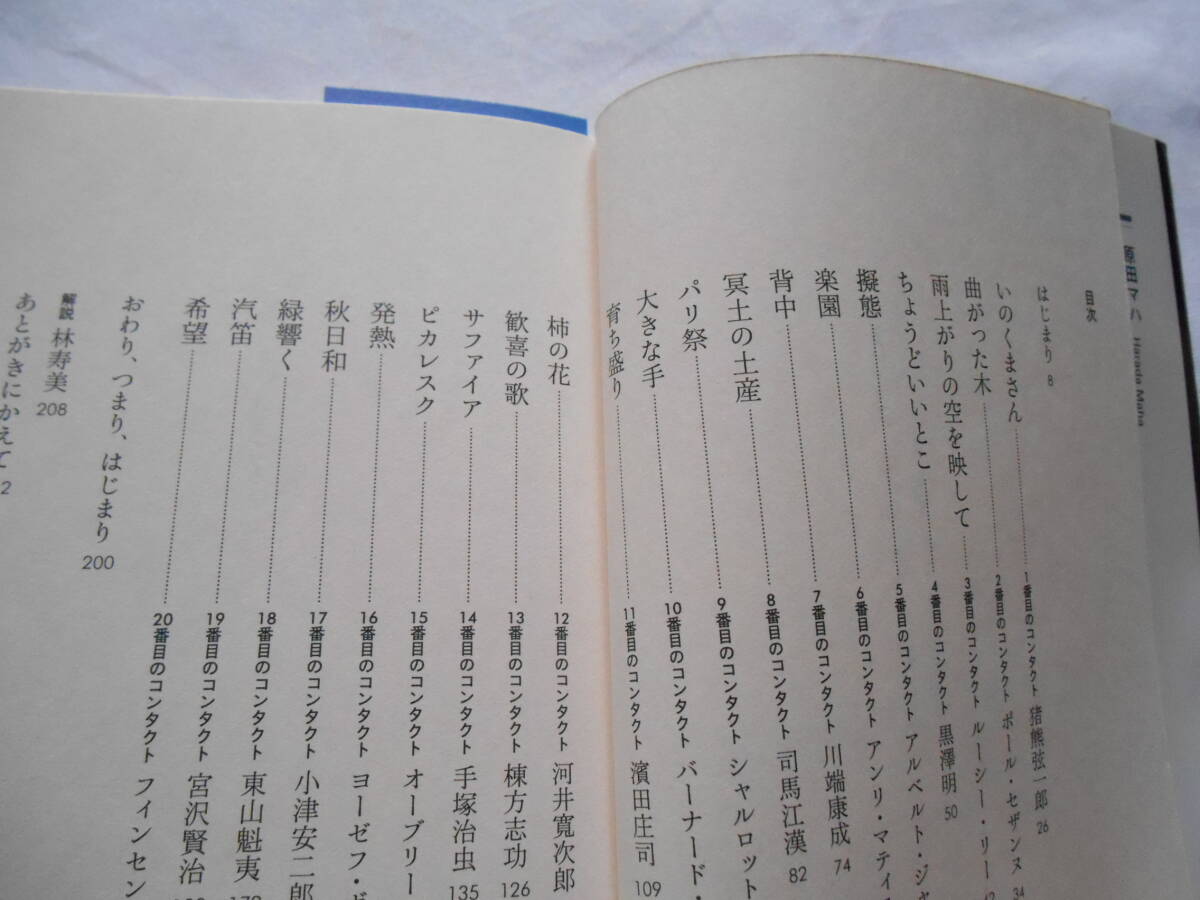 原田マハ Harada Maha
目次
はじまり 8
いのくまさん 1番目のコンタクト 猪熊弦一郎 26
曲がった木 2番目のコンタクト ポール・セザンヌ 34
雨上がりの空を映して 3番目のコンタクト ルーシー・リー
ちょうどいいとこ 4番目のコンタクト 黒澤明 50
擬態 5番目のコンタクト アルベルト・ジャ
楽園 6番目のコンタクト アンリ・マティ
背中 7番目のコンタクト 川端康成 74
冥土の土産 8番目のコンタクト 司馬江漢 82
パリ祭 9番目のコンタクト シャルロット
大きな手 10番目のコンタクト バーナード・
育ち盛り 11番目のコンタクト 濱田庄司 109
柿の花 12番目のコンタクト 河井寛次郎
歓喜の歌 13番目のコンタクト 棟方志功 126
サファイア 14番目のコンタクト 手塚治虫 135
ピカレスク 15番目のコンタクト オーブリー
発熱 16番目のコンタクト ヨーゼフ・
秋日和 17番目のコンタクト 小津安二郎
緑響く 18番目のコンタクト 東山魁夷
汽笛 19番目のコンタクト 宮沢賢治
希望 20番目のコンタクト フィンセン
おわり、つまり、はじまり 200
解説 林寿美 208
あとがきにかえて